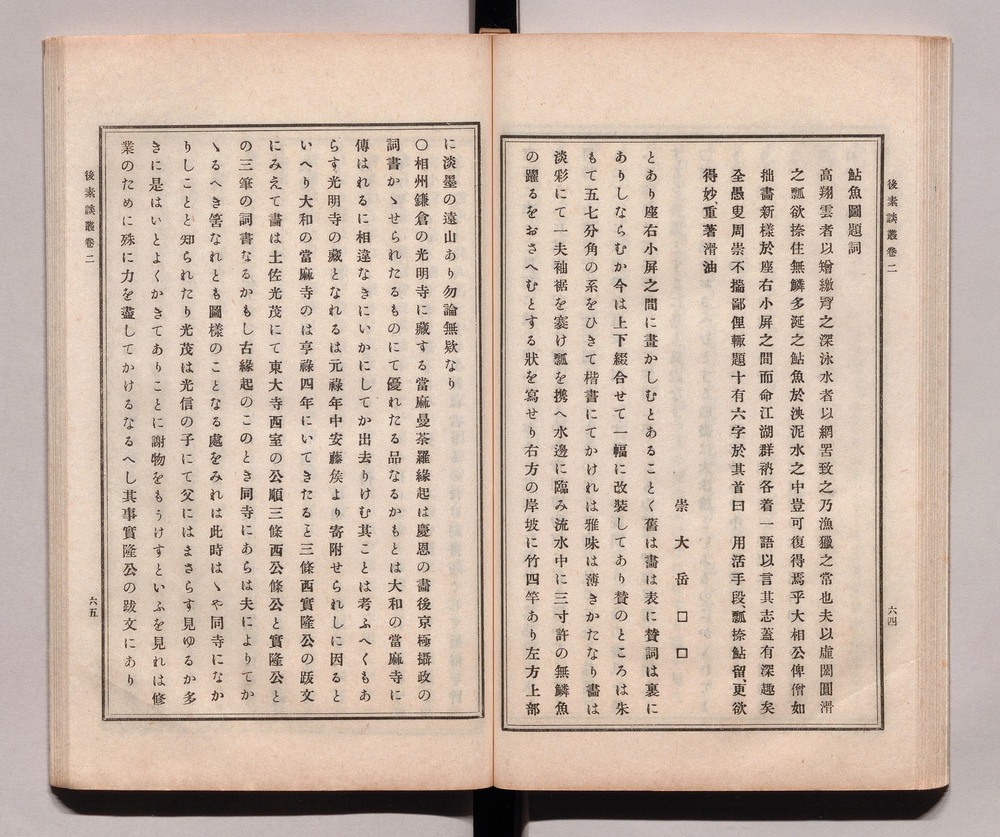 後素談叢卷二
鮎魚圖題詞
高翔雲者以矰繳弋之深泳水者以網罟致之乃漁獵之常也夫以虛圓圓滑
之瓢欲捺住無鱗多涎之鮎魚於泱泥水之中豈可復得焉乎大相公俾僧如
拙畫新樣於座右小屏之間而命江湖群衲各着一語以言其志蓋有深趣矣
全愚叟周崇不揣鄙俚輙題十有六字於其首曰　用活手段、瓢捺鮎留、更欲
得妙、重著滑油
崇大岳□□
とあり座右小屏之間に畫かしむとあることく舊は畫は表に贊詞は裏に
ありしならむか今は上下綴合せて一幅に改裝してあり贊のところは朱
もて五七分角の糸をひきて楷書にてかけれは雅味は薄きかたなり畫は
淡彩にて一夫袖裾を褰け瓢を携へ水邊に臨み流水中に三寸許の無鱗魚
の躍るをおさへむとする狀を寫せり右方の岸坡に竹四竿あり左方上部
六四
に淡墨の遠山あり勿論無欵なり
〇相州鎌倉の光明寺に藏する當麻曼荼羅緣起は慶恩の畫後京極攝政の
詞書かゝせられたるものにて優れたる品なるかもとは大和の當麻寺に
傳はれるに相違なきにいかにしてか出去りけむ其ことは考ふへくもあ
らす光明寺の藏となれるは元祿年中安藤侯より寄附せられしに因ると
いへり大和の當麻寺のは享祿四年にいてきたると三條西實隆公の跋文
にみえて畫は土佐光茂にて東大寺西室の公順三條西公條公と實隆公と
の三筆の詞書なるかもし古緣起のこのとき同寺にあらは夫によりてか
ゝるへき筈なれとも圖樣のことなる處をみれは此時はゝや同寺になか
りしことと知られたり光茂は光信の子にて父にはまさらす見ゆるか多
きに是はいとよくかきてありことに謝物をもうけすといふを見れは修
業のために殊に力を盡してかけるなるへし其事實隆公の跋文にあり
後素談叢卷二
六五